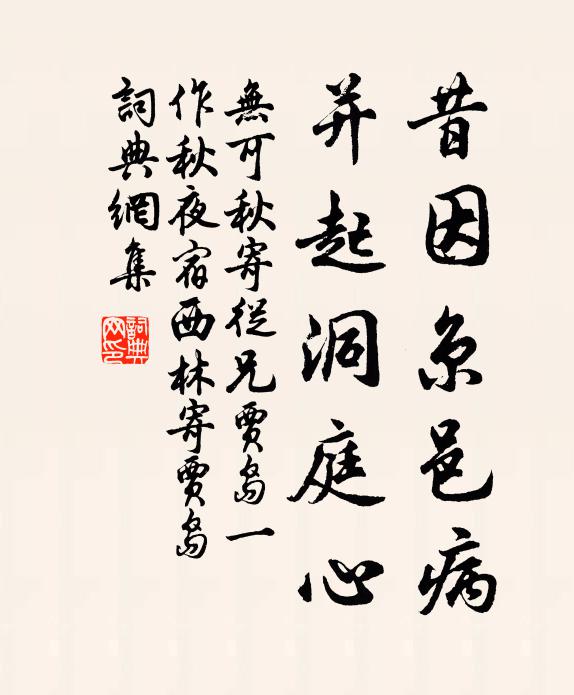 昔因京邑病
并起洞庭心
無可秋寄從兄賈島一
作秋夜宿西林寄賈島
詞典網集
詞典网印